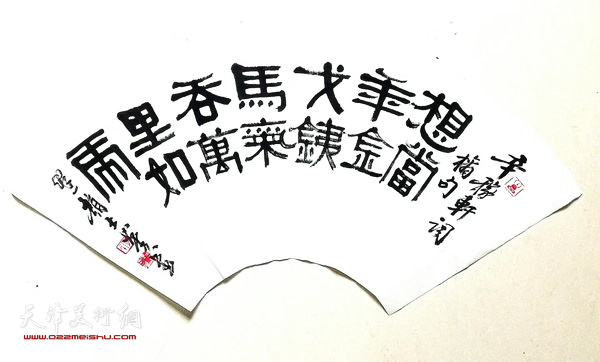 想當
年金
戈銕
馬氣
吞萬
里如
虎
辛稼軒詞
摘句
天津美術網
www.022meishu.com